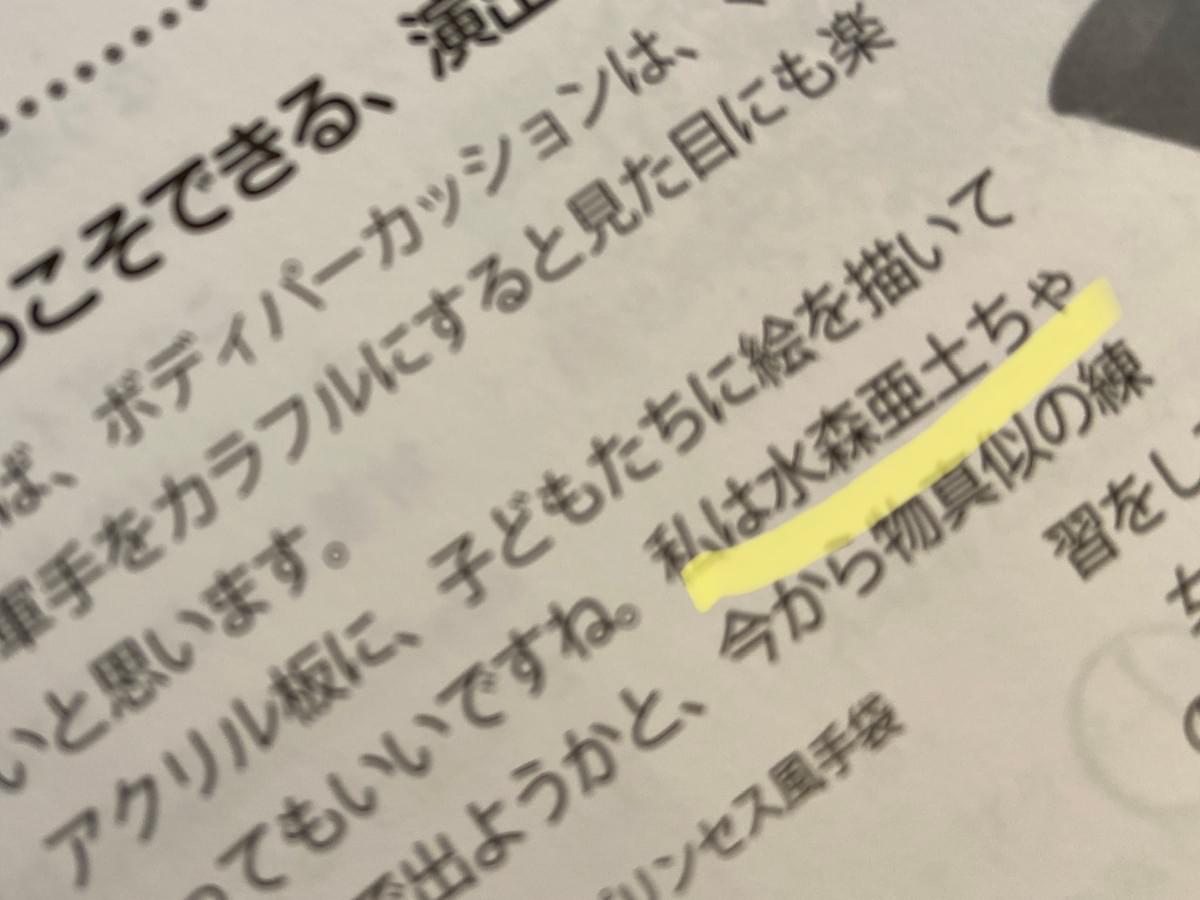 こそできる、演出
ば、ボディパーカッションは、
軍手をカラフルにすると見た目にも楽
いと思います。
アクリル板に、子どもたちに絵を描いて
ってもいいですね。私は水森亜土ちゃ
で出ようかと、今から物真似の練
習をし
プリンセス風手袋